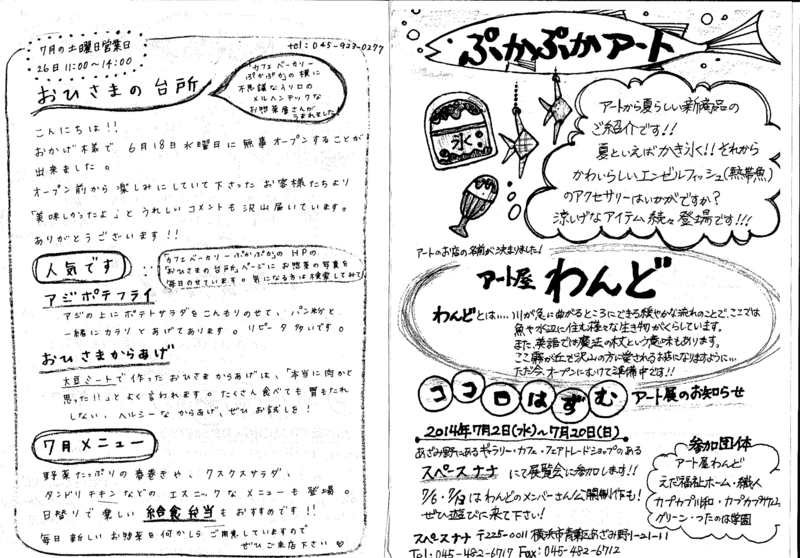 7月の土曜日営業日
26日 11:00〜14:00
tel:045-923-0277
おひさまの台所
カフェベーカリー
ぷかぷかの横に
不思議な入り口の
メルヘンチックな
お惣菜屋さんが
うまれました!
こんにちは!!
おかげ様で 6月18日水曜日に無事オープンすることが
出来ました。
オープン前から楽しみにしていて下さったお客様たちより
「美味しかったよ」とうれしいコメントも沢山届いています。
ありがとうございます!!
人気です
「カフェベーカリーぷかぷか」のHPの
「おひさまの台所」ページにお惣菜の写真を
毎日のせています。気になる方は検索してみて!
アジポテフライ
アジの上にポテトサラダをこんもりのせて、パン粉と
一緒にカラリとあげてあります。リピータ多いです。
おひさまからあげ
大豆ミートで作ったおひさまからあげは、「本当に肉かと
思った!!」とよく言われます。たくさん食べても胃もたれ
しない、ヘルシーなからあげ、ぜひお試しを!
7月メニュー
野菜たっぷりの春巻きや、クスクスサラダ、
タンドリチキンなどの、エスニックなメニューも登場。
日替りで楽しい給食弁当もおすすめです!!
毎日新しいお惣菜を何かしらご用意していますので
ぜひご来店下さい♡
ぷかぷかアート
氷
アートから夏らしい新商品の
ご紹介です!!
夏といえばかき氷!!それから
かわいらしいエンゼルフィッシュ(熱帯魚)
のアクセサリーはいかがですか?
涼しげなアイテム続々登場です!!!
アートのお店の名前が決まりました!
アート屋 わんど
わんどとは…川が急に曲がるところにできる緩やかな流れのことで、ここでは
魚や水辺に住む様々な生き物がくらしています。
また、英語では魔法の杖という意味もあります。
ここ霧が丘で沢山の方に愛されるお店になりますように…
ただ今、オープンにむけて準備中です!!
ココロはずむ アート展のお知らせ
2014年7月2日(水)〜7月20日(日)
あざみ野にあるギャラリー・カフェ・フェアトレードショップのある
スペースナナ にて展覧会に参加します!!
7/6・7/12はわんどのメンバーさん公開制作も!
ぜひ遊びに来て下さい!
参加団体
アート屋わんど
えだ福祉ホーム・織人
カプカプ川和・カプカプ竹山
グリーン・つたのは学園
スペースナナ 〒225-0011 横浜市青葉区あざみ野1-21-11
Tel:045-482-6717 Fax:045-482-6712